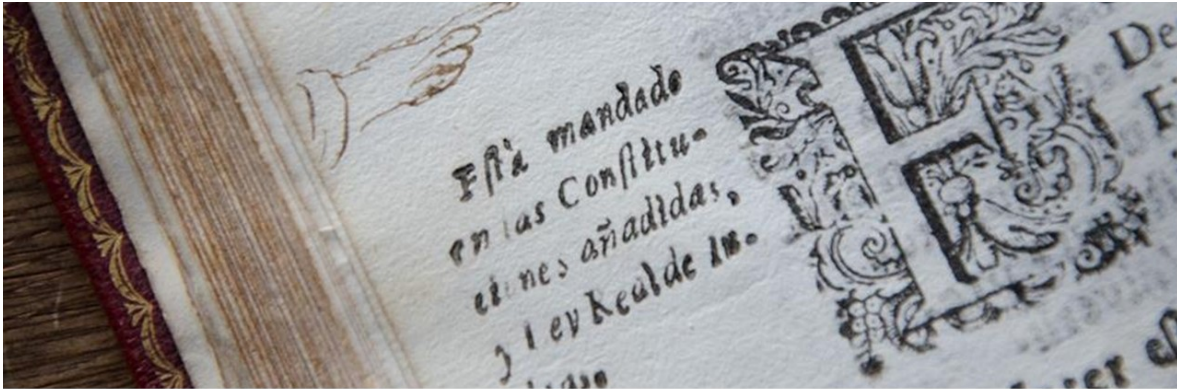 Eſtà mandado
en las Conſtitu-
ciones añadidas,
y ley Real de In-
E
De